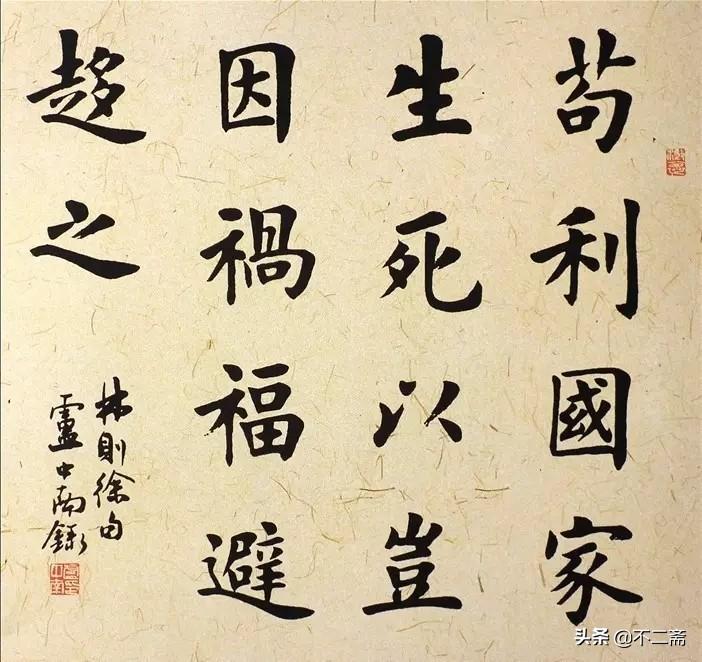 苟利國家
生死以豈
因禍福避
趍之
林則徐句
盧中南錄
头条 @不二斋